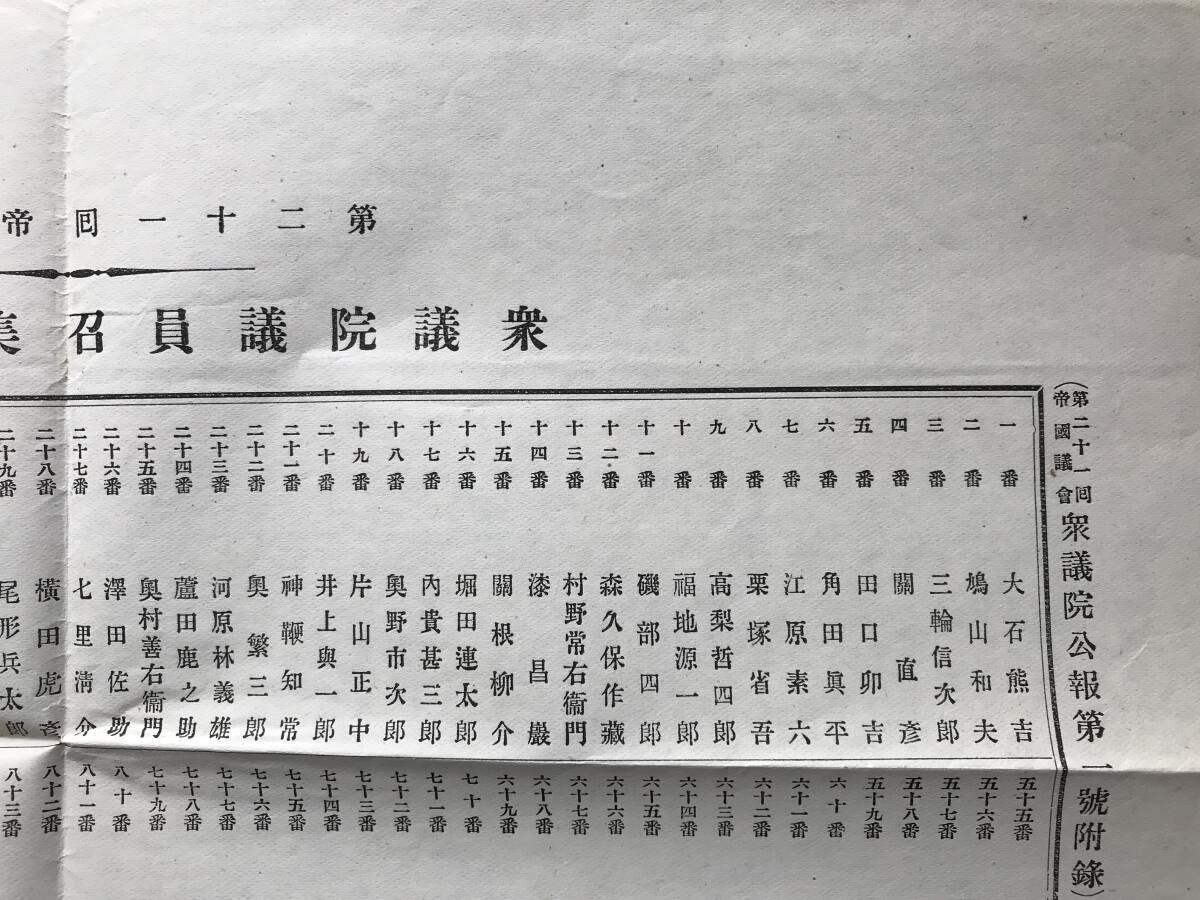 第二十一囘帝
衆議院議員召集
（第二十一囘帝國議會衆議院公報第一號附錄）
一番 大石熊吉
二番 鳩山和夫
三番 三輪信次郎
四番 關直彦
五番 田口卯吉
六番 角田眞平
七番 江原素六
八番 栗塚省吾
九番 高梨哲四郎
十番 福地源一郎
十一番 磯部四郎
十二番 森久保作藏
十三番 村野常右衞門
十四番 漆昌巖
十五番 關根柳介
十六番 堀田連太郎
十七番 內貴甚三郎
十八番 奧野市次郎
十九番 片山正中
二十番 井上與一郎
二十一番 神鞭知常
二十二番 奧繁三郎
二十三番 河原林義雄
二十四番 蘆田鹿之助
二十五番 奧村善右衞門
二十六番 澤田佐助
二十七番 七里淸介
二十八番 橫田虎彦
二十九番 尾形兵太郎
五十五番
五十六番
五十七番
五十八番
五十九番
六十番
六十一番
六十二番
六十三番
六十四番
六十五番
六十六番
六十七番
六十八番
六十九番
七十番
七十一番
七十二番
七十三番
七十四番
七十五番
七十六番
七十七番
七十八番
七十九番
八十番
八十一番
八十二番
八十三番